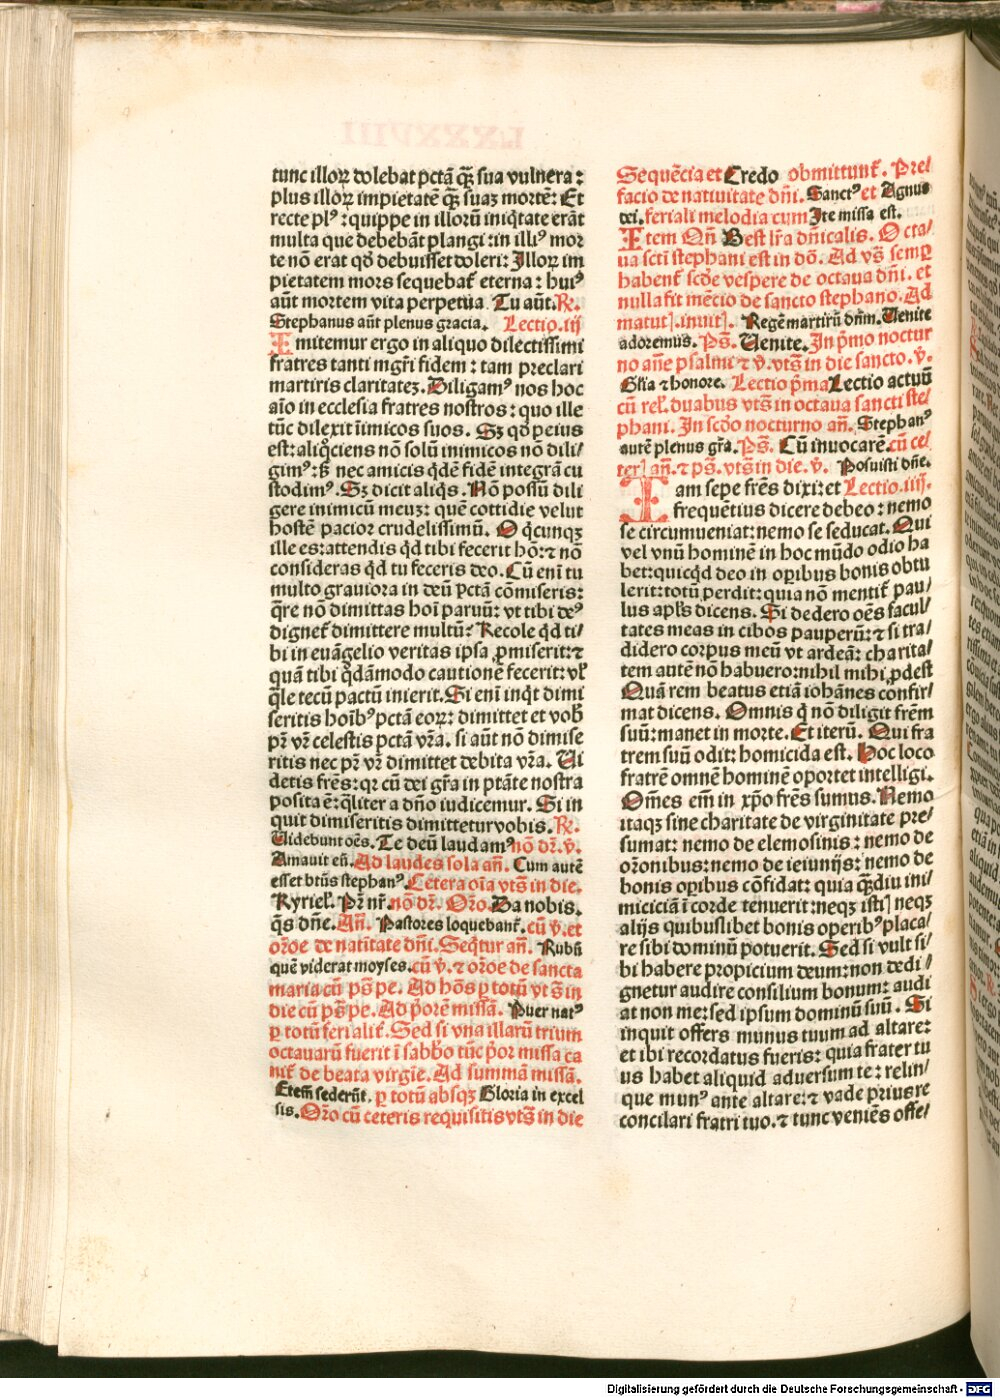 tunc illoꝝ dolebat pctā qꝫ̄ sua vulnera:
plus illoꝝ impietatē qꝫ̄ suaꝫ mortē: Et
recte plꝰ: quippe in illorū iniq̇tate erāt
multa que debebāt plangi: in illiꝰ mor
te nō erat qd̓ debuisset doleri: Illoꝝ im
pietatem mors sequebat᷑ eterna: huiꝰ
aūt mortem vita perpetua Tu aūt. ℞.
Stephanus aūt plenus gracia. Lectio.iij
Imitemur ergo in aliquo dilectissimi
fratres tanti mgr̄i fidem: tam preclari
martiris claritateꝫ. Diligamꝰ nos hoc
aīo in ecclesia fratres nostros: quo ille
tūc dilexit īimicos suos. Sꝫ qd̓ peius
est: aliq̇ciens nō solū inimicos nō dili/
gimꝰ: sꝫ nec amicis q̇dē fidē integrā cu
stodimꝰ. Sꝫ dicit aliq̇s. Nō possū dili
gere inimicū meuꝫ: quē cottidie velut
hostē pacior crudelissimū. O q̇cunqꝫ
ille es: attendis q̇d tibi fecerit hō: ⁊ nō
consideras q̇d tu feceris deo. Cū enī tu
multo grauiora in deū pctā cōmiseris:
q̄re nō dimittas hoī paruū: vt tibi deꝰ
dignet᷑ dimittere multū? Recole q̇d ti/
bi in euāgelio veritas ipsa ꝓmiserit: ⁊
quā tibi q̇dāmodo cautionē fecerit: vł
q̄le tecū pactū inierit. Si enī inq̇t dimi
seritis hoībꝰ pctā eoꝝ: dimittet et vob̓
pr̄ vr̄ celestis pctā vr̄a. si aūt nō dimise
ritis nec pr̄ vr̄ dimittet debita vr̄a. Vi
detis frēs: qꝛ cū dei gr̄a in ptāte nostra
posita ē: q̄liter a dn̄o iudicemur. Si in
quit dimiseritis dimittetur vobis. ℞.
Videbunt oēs. Te deū laudamꝰ nō dr̄. v̓.
Amauit eū. Ad laudes sola an̄. Cum autē
esset btūs stephanꝰ. Cetera oīa vts̄ in die.
Kyrieł. Pr̄ nr̄. nō dr̄. Or̄o. Da nobis.
qs̄ dn̄e. An̄. Pastores loquebant᷑. cū v̓. et
or̄oe de natītate dn̄i. Seq̄tur an̄. Rubū
quē viderat moyses. cū v̓. ⁊ or̄oe de sancta
maria cū ps̄ pe. Ad hōs ꝑ totū vts̄ in
die cū ps̄ pe. Ad p̓orē missā. Puer natꝰ
ꝑ totū feri alit᷑. Sed si vna illarū trium
octauarū fuerit ī sabb̓o tūc p̓or missa ca
nit᷑ de beata virgīe. Ad summā missā.
Etem̄ sederūt. ꝑ totū absqꝫ Gloria in excel
sis. Or̄o cū ceteris requisitis vts̄ in die
Sequēcia et Credo obmittunt᷑. Pre/
facio de natiuitate dn̄i. Sanctꝰ et Agnus
dei. feriali melodia cum Ite missa est.
Item Qn̄ B est lr̄a dn̄icalis. Octa/
ua scti stephani est in dō. Ad vs̄ semꝑ
habent᷑ scd̓e vespere de octaua dn̄i. et
nulla fit mēcio de sancto stephano. Ad
matuṫ. inuiṫ. Regē martirū dn̄m. Uenite
adoremus. Ps̄. Uenite. In p̓mo noctur
no an̄e psalmi ⁊ v̓. vts̄ in die sancto. v̓.
Gl̄ia ⁊ honore. Lectio p̓ma Lectio actuū
cū reł. duabus vts̄ in octaua sancti ste/
phani. In scd̓o nocturno an̄. Stephanꝰ
autē plenus gr̄a. Ps̄. Cū inuocarē. cū ce/
teṙ an̄. ⁊ ps̄. vts̄ in die. v̓. Posuisti dn̄e.
Iam sepe frēs dixi: et Lectio.iiij.
frequētius dicere debeo: nemo
se circumueniat: nemo se seducat. Qui
vel vnū hominē in hoc mūdo odio ha
bet: quicq̇d deo in oꝑibus bonis obtu
lerit: totū perdit: quia nō mentit᷑ pau/
lus apl̄s dicens. Si dedero oēs facul/
tates meas in cibos pauperū: ⁊ si tra/
didero corpus meū vt ardeā: charita/
tem autē nō habuero: nihil mihi ꝓdest
Quā rem beatus etiā iohānes confir/
mat dicens. Omnis q̇ nō diligit frēm
suū: manet in morte. Et iterū. Qui fra
trem suū odit: homicida est. Hoc loco
fratrē omnē hominē oportet intelligi.
Om̄es em̄ in xp̄o frēs sumus. Nemo
itaqꝫ sine charitate de virginitate pre/
sumat: nemo de elemosinis: nemo de
or̄onibus: nemo de ieiunijs: nemo de
bonis oꝑibus cōfidat: quia qꝫ̄diu ini/
miciciā ī corde tenuerit: neqꝫ istiṡ neqꝫ
alijs quibuslibet bonis operibꝰ placa/
re sibi dominū potuerit. Sed si vult si/
bi habere propicium deum: non dedi/
gnetur audire consilium bonum: audi
at non me: sed ipsum dominū suū. Si
inquit offers munus tuum ad altare:
et ibi recordatus fueris: quia frater tu
us habet aliquid aduersum te: relin/
que munꝰ ante altare: ⁊ vade prius re
conciliari fratri tuo. ⁊ tunc veniēs offe/
Digitalisierung gefördert durch die Deutsche Forschungsgemeinschaft - DFG